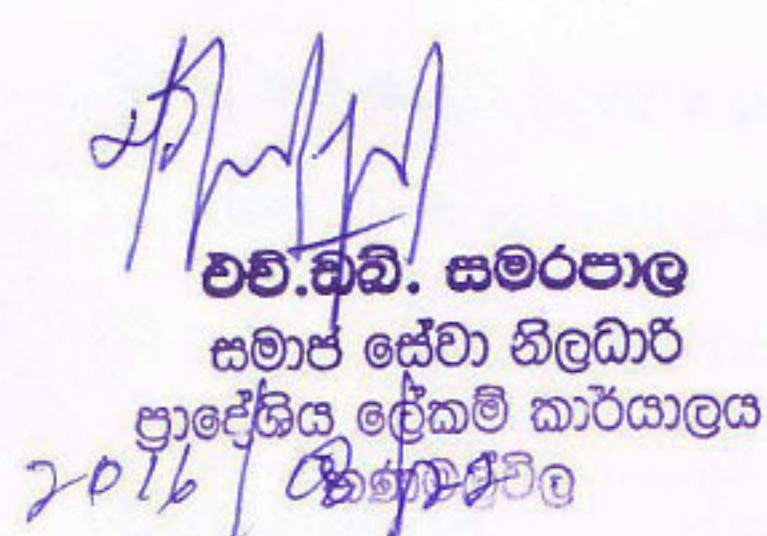 එච්.ඩබ්. සමරපාල
සමාජ සේවා නිලධාරි
ප්‍රාදේශීය ලේකම් කාර්යාලය
2016 / /22